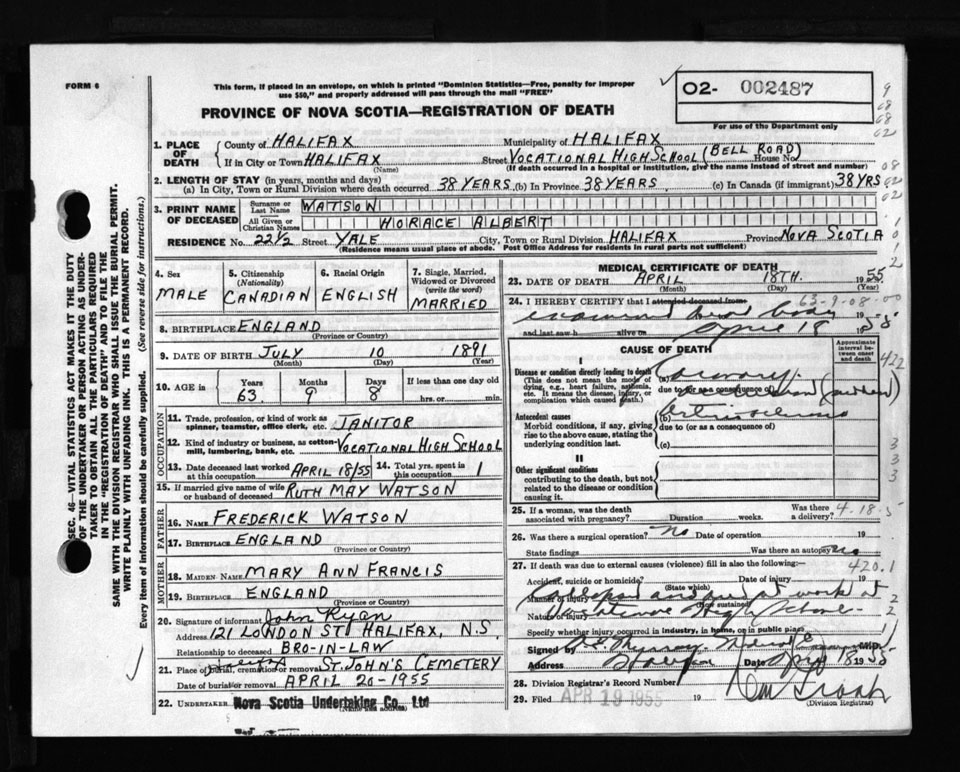 FORM 6
This form, if placed in an envelope, on which is printed "Dominion Statistics—Free, penalty for improper
use $50," and properly addressed will pass through the mail "FREE"
O2- 002487
For use of the Department only
PROVINCE OF NOVA SCOTIA—REGISTRATION OF DEATH
1. PLACE OF DEATH
County of HALIFAX Municipality of HALIFAX
If in City or Town HALIFAX Street VOCATIONAL HIGH SCHOOL (BELL ROAD) House No.
(Name) (If death occurred in a hospital or institution, give the name instead of street and number)
2. LENGTH OF STAY (in years, months and days)
(a) In City, Town or Rural Division where death occurred 38 YEARS (b) In Province 38 YEARS (c) In Canada (if immigrant) 38 YRS
3. PRINT NAME OF DECEASED
Surname or Last Name WATTSON
All Given or Christian Names HORACE ALBERT
RESIDENCE No. 22 1/2 Street YALE City, Town or Rural Division HALIFAX Province NOVA SCOTIA
(Residence means usual place of abode. Post Office Address for residents in rural parts not sufficient)
4. Sex MALE
5. Citizenship (Nationality) CANADIAN
6. Racial Origin ENGLISH
7. Single, Married, Widowed or Divorced (write the word) MARRIED
8. BIRTHPLACE ENGLAND
(Province or Country)
9. DATE OF BIRTH July 10 1891
(Month) (Day) (Year)
10. AGE in Years 63 Months 9 Days 8 If less than one day old hrs. or min.
OCCUPATION
11. Trade, profession, or kind of work as spinner, teamster, office clerk, etc. JANITOR
12. Kind of industry or business, as cotton-mill, lumbering, bank, etc. VOCATIONAL HIGH SCHOOL
13. Date deceased last worked at this occupation APRIL 18/55 14. Total yrs. spent in this occupation 1
15. If married give name of wife or husband of deceased RUTH MAY WATSON
FATHER
16. NAME FREDERICK WATSON
17. BIRTHPLACE ENGLAND
(Province or Country)
MOTHER
18. MAIDEN NAME MARY ANN FRANCIS
19. BIRTHPLACE ENGLAND
(Province or Country)
20. Signature of informant John Ryan
Address 121 LONDON ST. HALIFAX, N.S.
Relationship to deceased BRO-IN-LAW
21. Place of burial, cremation or removal Halifax ST. JOHN'S CEMETERY
Date of burial or removal APRIL 20-1955
22. UNDERTAKER Nova Scotia Undertaking Co. Ltd
(Name and address)
MEDICAL CERTIFICATE OF DEATH
23. DATE OF DEATH APRIL 18TH. 1955
(Month) (Day) (Year)
24. I HEREBY CERTIFY that I attended deceased from 63-9-08-00
examined dead body 19
and last saw h alive on April 18 1955
CAUSE OF DEATH
Approximate interval between onset and death
I
Disease or condition directly leading to death
(This does not mean the mode of dying, e.g., heart failure, asthenia, etc. It means the disease, injury, or complication which caused death.)
(a) Coronary
due to (or as a consequence of)
422
Antecedent causes
Morbid conditions, if any, giving rise to the above cause, stating the underlying condition last.
(b) arteriosclerosis
due to (or as a consequence of)
(c)
II
Other significant conditions
contributing to the death, but not related to the disease or condition causing it.
25. If a woman, was the death associated with pregnancy? Duration weeks. Was there a delivery?
4-18-5
26. Was there a surgical operation? no Date of operation 19
State findings Was there an autopsy no
27. If death was due to external causes (violence) fill in also the following:
420.1
Accident, suicide or homicide? Date of injury 19
(State which)
Manner of injury Collapsed and died at work at
(How sustained)
Nature of injury Vocational High School
Specify whether injury occurred in industry, in home, or in public place
Signed by Murray M.D.
Address Halifax Date April 18 1955
28. Division Registrar's Record Number
29. Filed APR 19 1955 19
(Division Registrar)
SEC. 46—VITAL STATISTICS ACT MAKES IT THE DUTY
OF THE UNDERTAKER OR PERSON ACTING AS UNDERTAKER
TO OBTAIN ALL THE PARTICULARS REQUIRED
IN THE "REGISTRATION OF DEATH" AND TO FILE THE
SAME WITH THE DIVISION REGISTRAR WHO SHALL ISSUE THE BURIAL PERMIT.
WRITE PLAINLY WITH UNFADING INK. THIS IS A PERMANENT RECORD.
Every item of information should be carefully supplied. (See reverse side for instructions.)